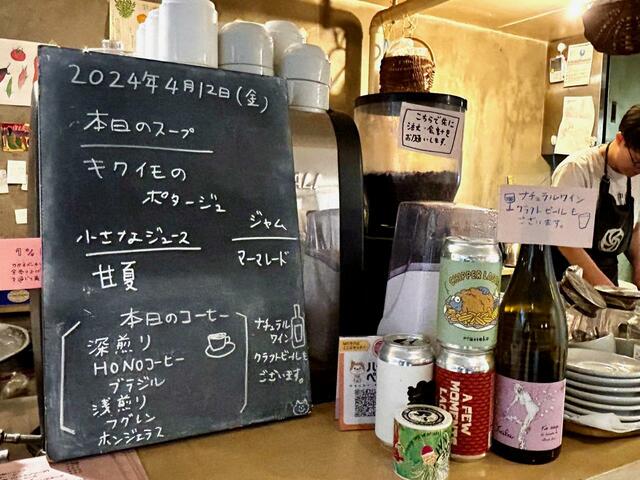 2024年4月12日(金)
本日のスープ
キクイモの
ポタージュ
小さなジュース
甘夏
ジャム
マーマレード
本日のコーヒー
深煎り
HONOコーヒー
ブラジル
浅煎り
フグレン
ホンジュラス
ナチュラル
ワイン
クラフトビールも
ございます。
こちらで先に
注文・会計を
お願いします。
ナチュラルワイン
クラフトビールも
ございます。
CHOPPER LOCAL
A FEW
MOMENTS
LATER